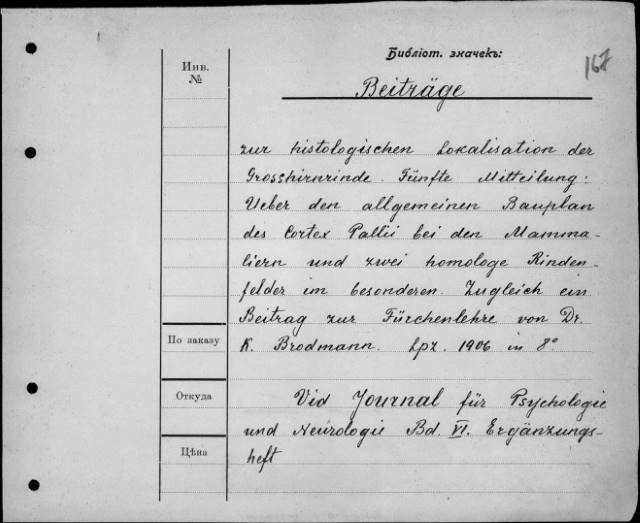 Библіот. значекъ:
167
Инв.
№
Beiträge
zur histologischen Lokalisation der
Grosshirnrinde. Fünfte Mitteilung:
Ueber den allgemeinen Bauplan
des Cortex Pallii bei den Mamma-
liern und zwei homologe Rinden-
felder im besonderen. Zugleich ein
Beitrag zur Fürchenlehre von Dr.
По заказу
K. Brodmann. Lpz. 1906 in 8°
Откуда
Vid Journal für Psychologie
und Neurologie Bd. VI. Ergänzungs-
Цѣна
heft